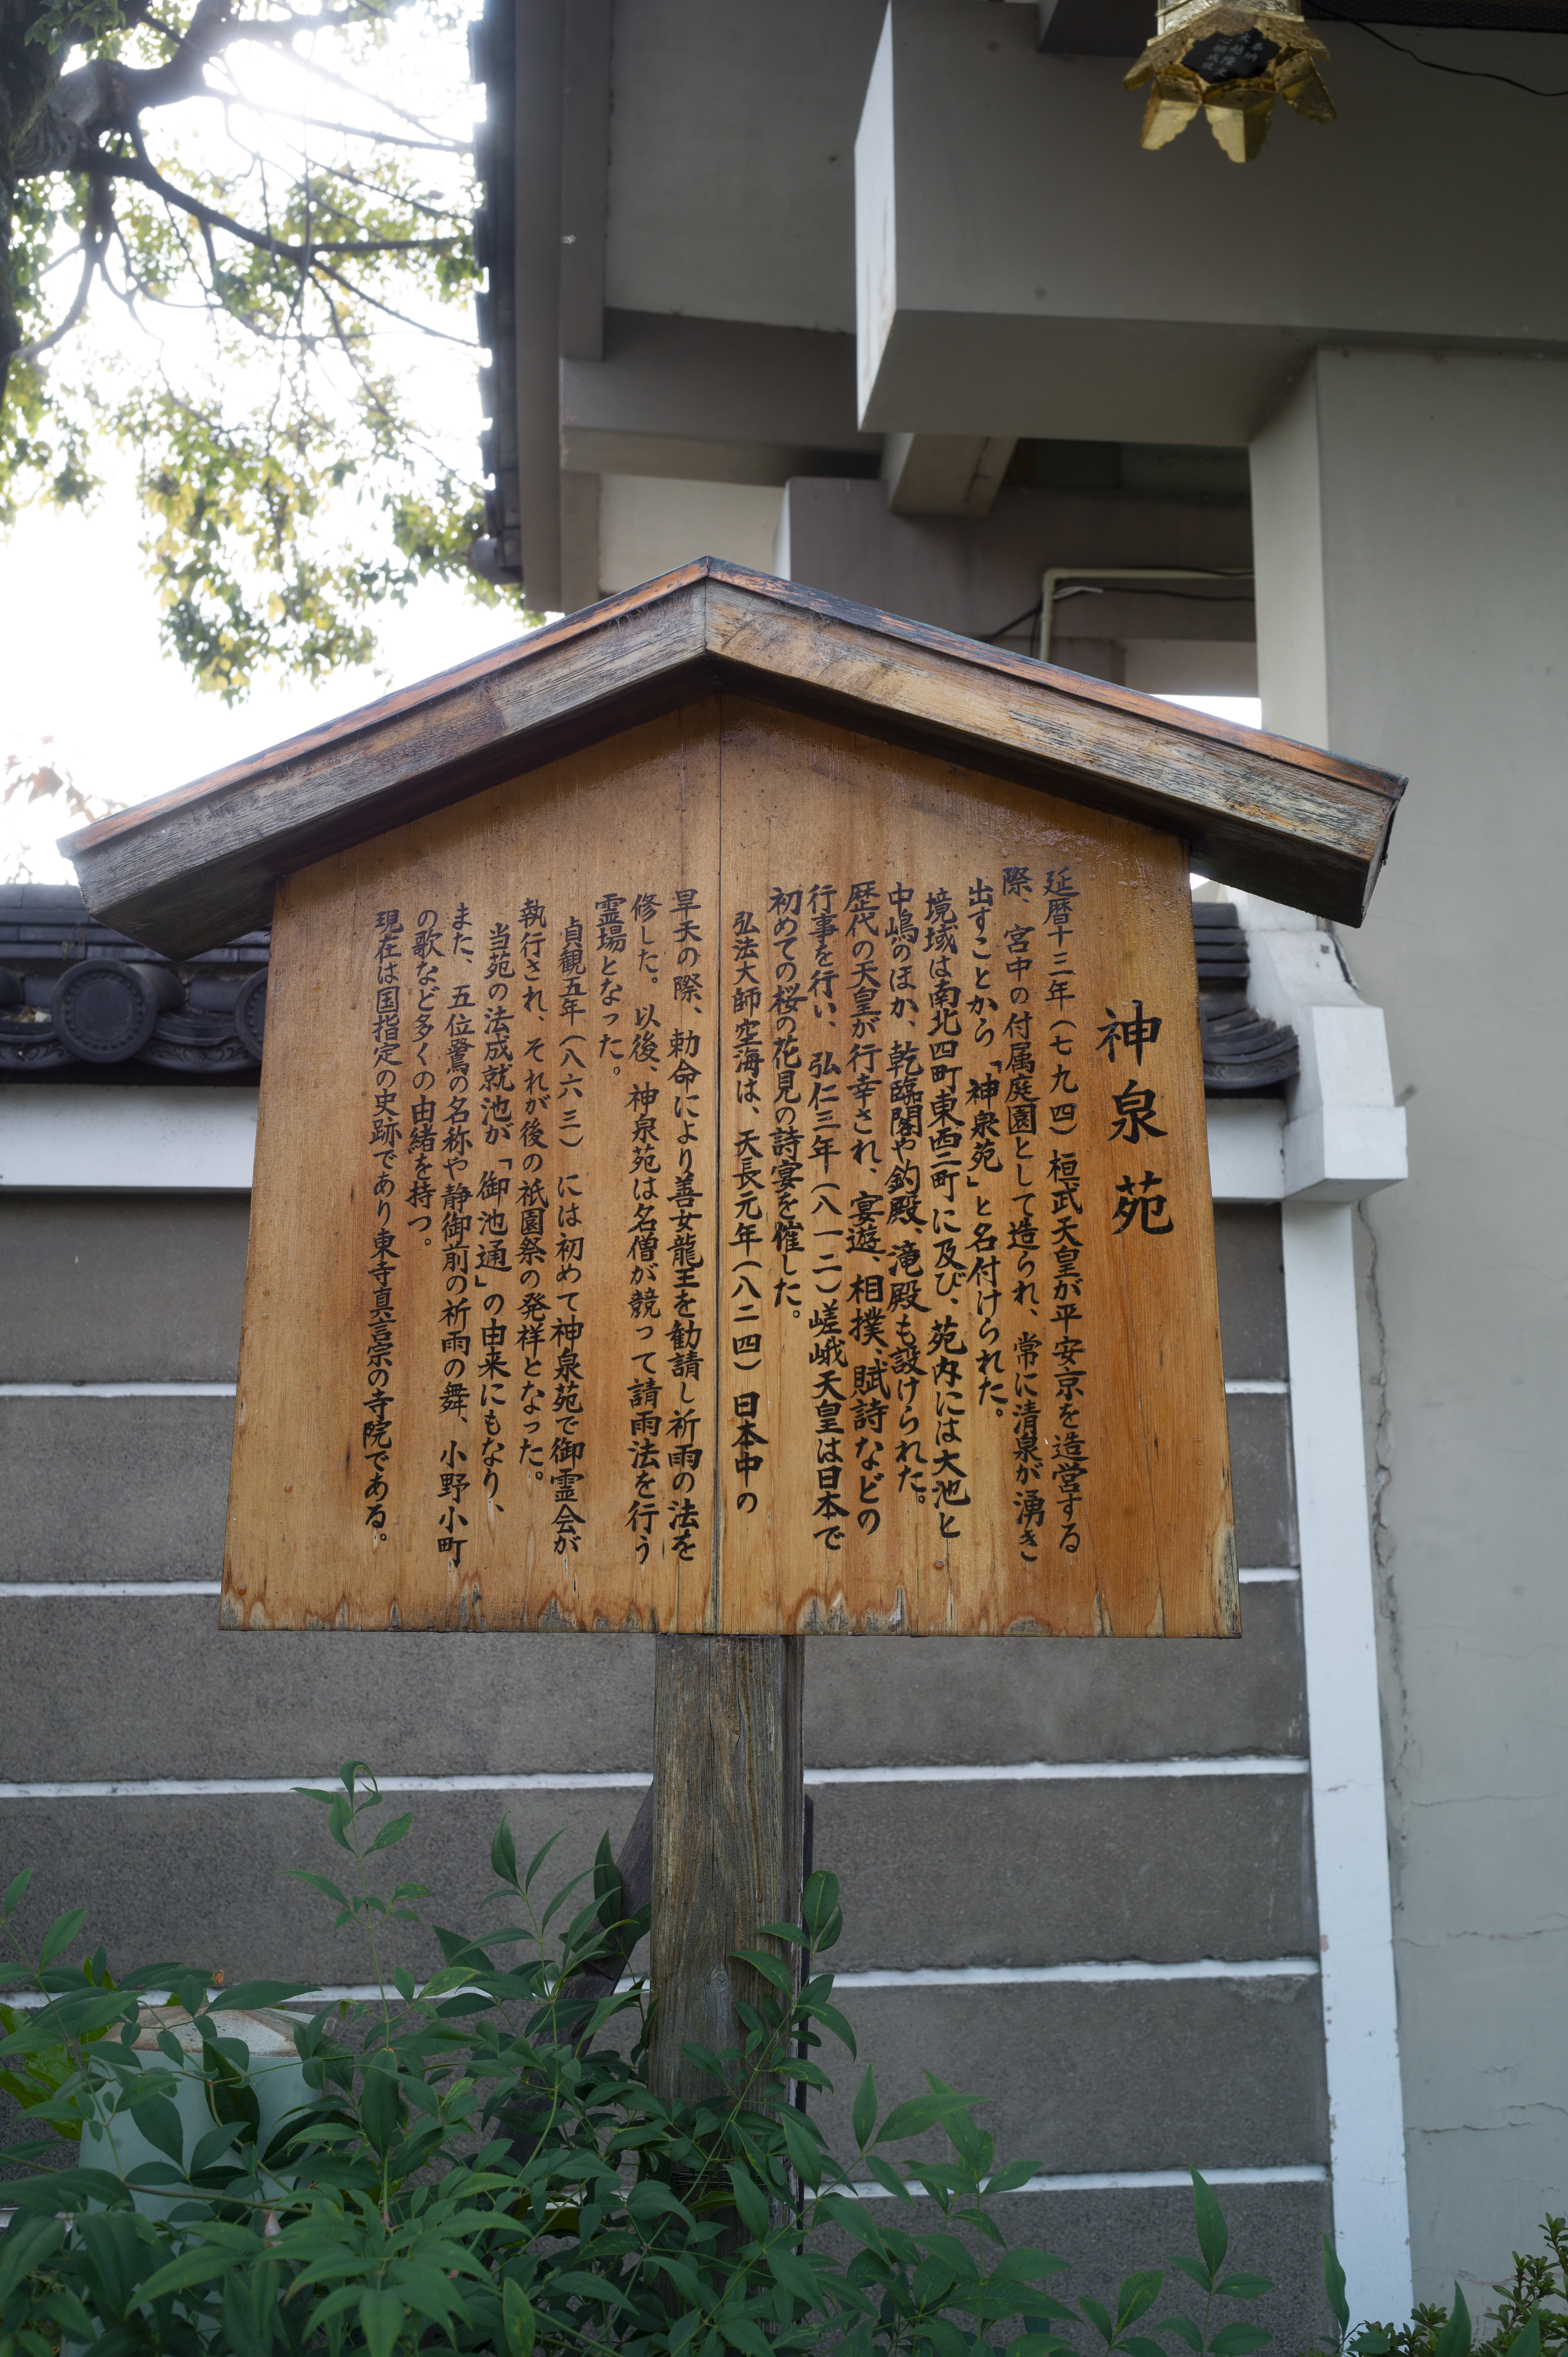 神泉苑
延暦十三年(七九四)桓武天皇が平安京を造営する
際、宮中の付属庭園として造られ、常に清泉が湧き
出すことから「神泉苑」と名付けられた。
境域は南北四町東西二町に及び、苑内には大池と
中嶋のほか、乾臨閣や釣殿、滝殿も設けられた。
歴代の天皇が行幸され、宴遊、相撲、賦詩などの
行事を行い、弘仁三年(八一二)嵯峨天皇は日本で
初めての桜の花見の詩宴を催した。
弘法大師空海は、天長元年(八二四)日本中の
旱天の際、勅命により善女龍王を勧請し祈雨の法を
修した。以後、神泉苑は名僧が競って請雨法を行う
霊場となった。
貞観五年(八六三)には初めて神泉苑で御霊会が
執行され、それが後の祇園祭の発祥となった。
当苑の法成就池が「御池通」の由来にもなり、
また、五位鷺の名称や静御前の祈雨の舞、小野小町
の歌など多くの由緒を持つ。
現在は国指定の史跡であり東寺真言宗の寺院である。